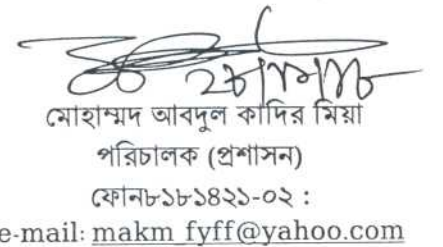 মোহাম্মদ আবদুল কাদির মিয়া
পরিচালক (প্রশাসন)
ফোন৮১৮১৪২১-০২ :
e-mail: makm_fyff@yahoo.com